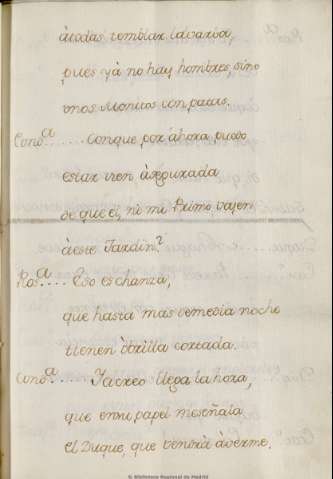 àtodas temblar la barba,
pues yà no hay hombres, sino
unos Monicos con patas.
Cond.ª ...... Conque por àhora puedo
estar bien àsegurada
de que el, ni mi Primo bajen
àeste Jardin?
Ros.ª .... Eso es chanza,
que hasta mas de media noche
tienen orilla cortada.
Cond.ª ..... Ya creo llega la hora,
que en mi papel meseñala
el Duque, que vendrà àverme.
© Biblioteca Nacional de Madrid